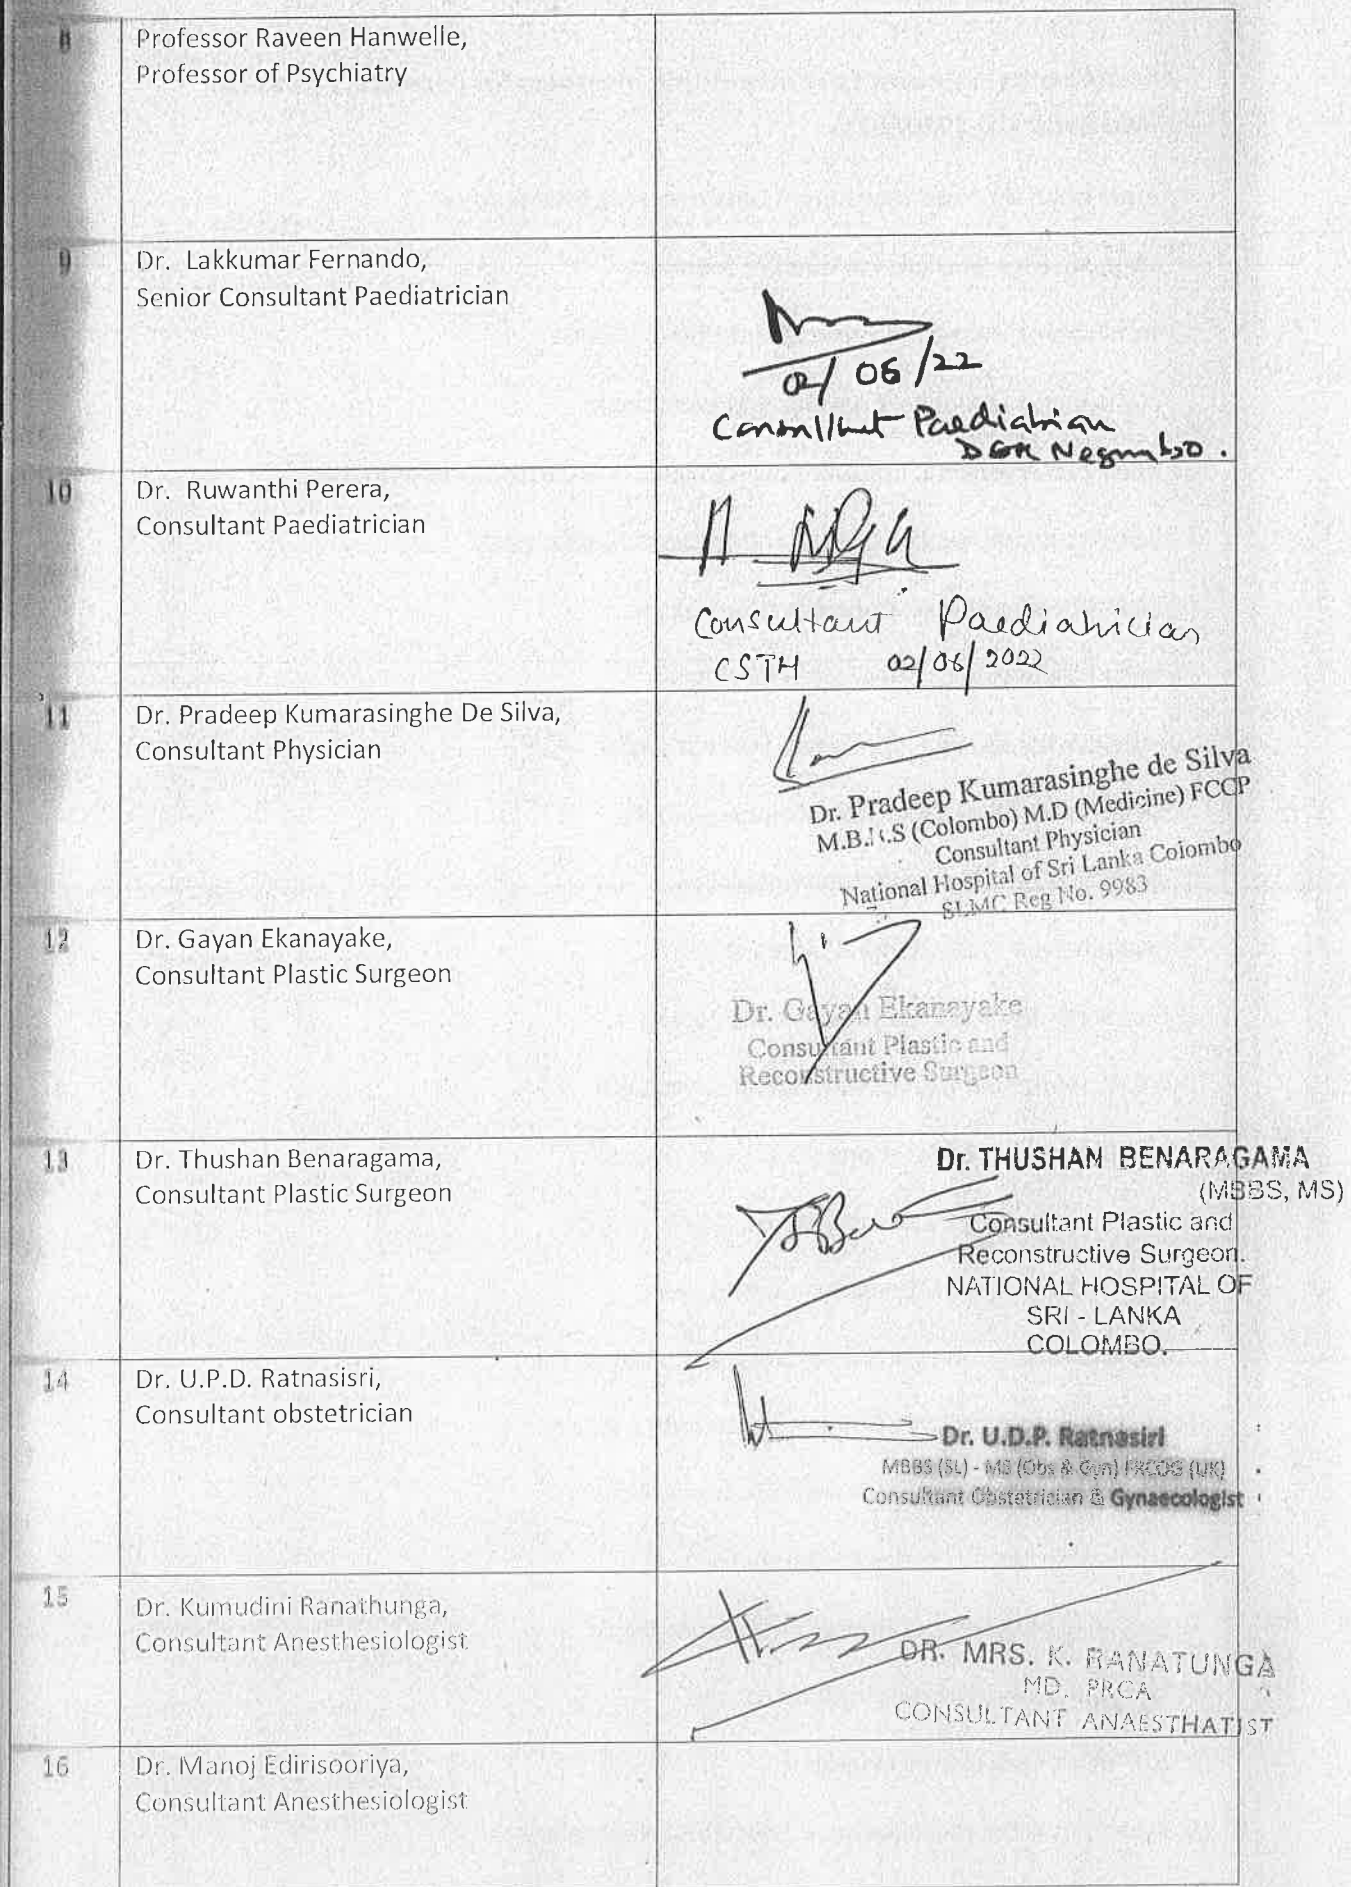 8
Professor Raveen Hanwelle,
Professor of Psychiatry
9
Dr. Lakkumar Fernando,
Senior Consultant Paediatrician
02/06/22
Consultant Paediatrician
DGH Negombo.
10
Dr. Ruwanthi Perera,
Consultant Paediatrician
Consultant Paediatrician
CSTH 02/06/2022
11
Dr. Pradeep Kumarasinghe De Silva,
Consultant Physician
Dr. Pradeep Kumarasinghe de Silva
M.B.B.S (Colombo) M.D (Medicine) FCCP
Consultant Physician
National Hospital of Sri Lanka Colombo
SLMC Reg No. 9983
12
Dr. Gayan Ekanayake,
Consultant Plastic Surgeon
Dr. Gayan Ekanayake
Consultant Plastic and
Reconstructive Surgeon
13
Dr. Thushan Benaragama,
Consultant Plastic Surgeon
Dr. THUSHAN BENARAGAMA
(MBBS, MS)
Consultant Plastic and
Reconstructive Surgeon.
NATIONAL HOSPITAL OF
SRI - LANKA
COLOMBO.
14
Dr. U.P.D. Ratnasisri,
Consultant obstetrician
Dr. U.D.P. Ratnasiri
MBBS (SL) - MS (Obs & Gyn) FRCOG (UK)
Consultant Obstetrician & Gynaecologist
15
Dr. Kumudini Ranathunga,
Consultant Anesthesiologist
DR. MRS. K. RANATUNGA
MD. FRCA
CONSULTANT ANAESTHATIST
16
Dr. Manoj Edirisooriya,
Consultant Anesthesiologist